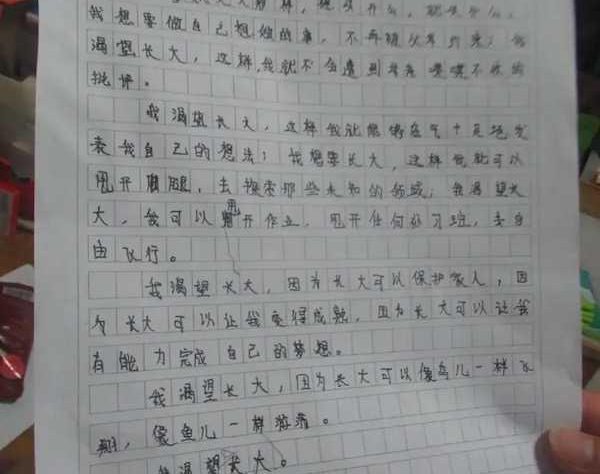 我想要做自己想做的事，不再被父母约束；我
渴望长大，这样，我就不会遭到母亲喋喋不休的
批评。
我渴望长大，这样我就能够底气十足地发
表我自己的想法；我想要长大，这样我就可以
甩开膀腿，去探索那些未知的领域；我渴望长
大，我可以甩开作业，甩开任何补习班，去自
由飞行。
我渴望长大，因为长大可以保护家人，因
为长大可以让我变得成熟，因为长大可以让我
有能力完成自己的梦想。
我渴望长大，因为长大可以像鸟儿一样飞
翔，像鱼儿一样游荡。
我渴望长大。